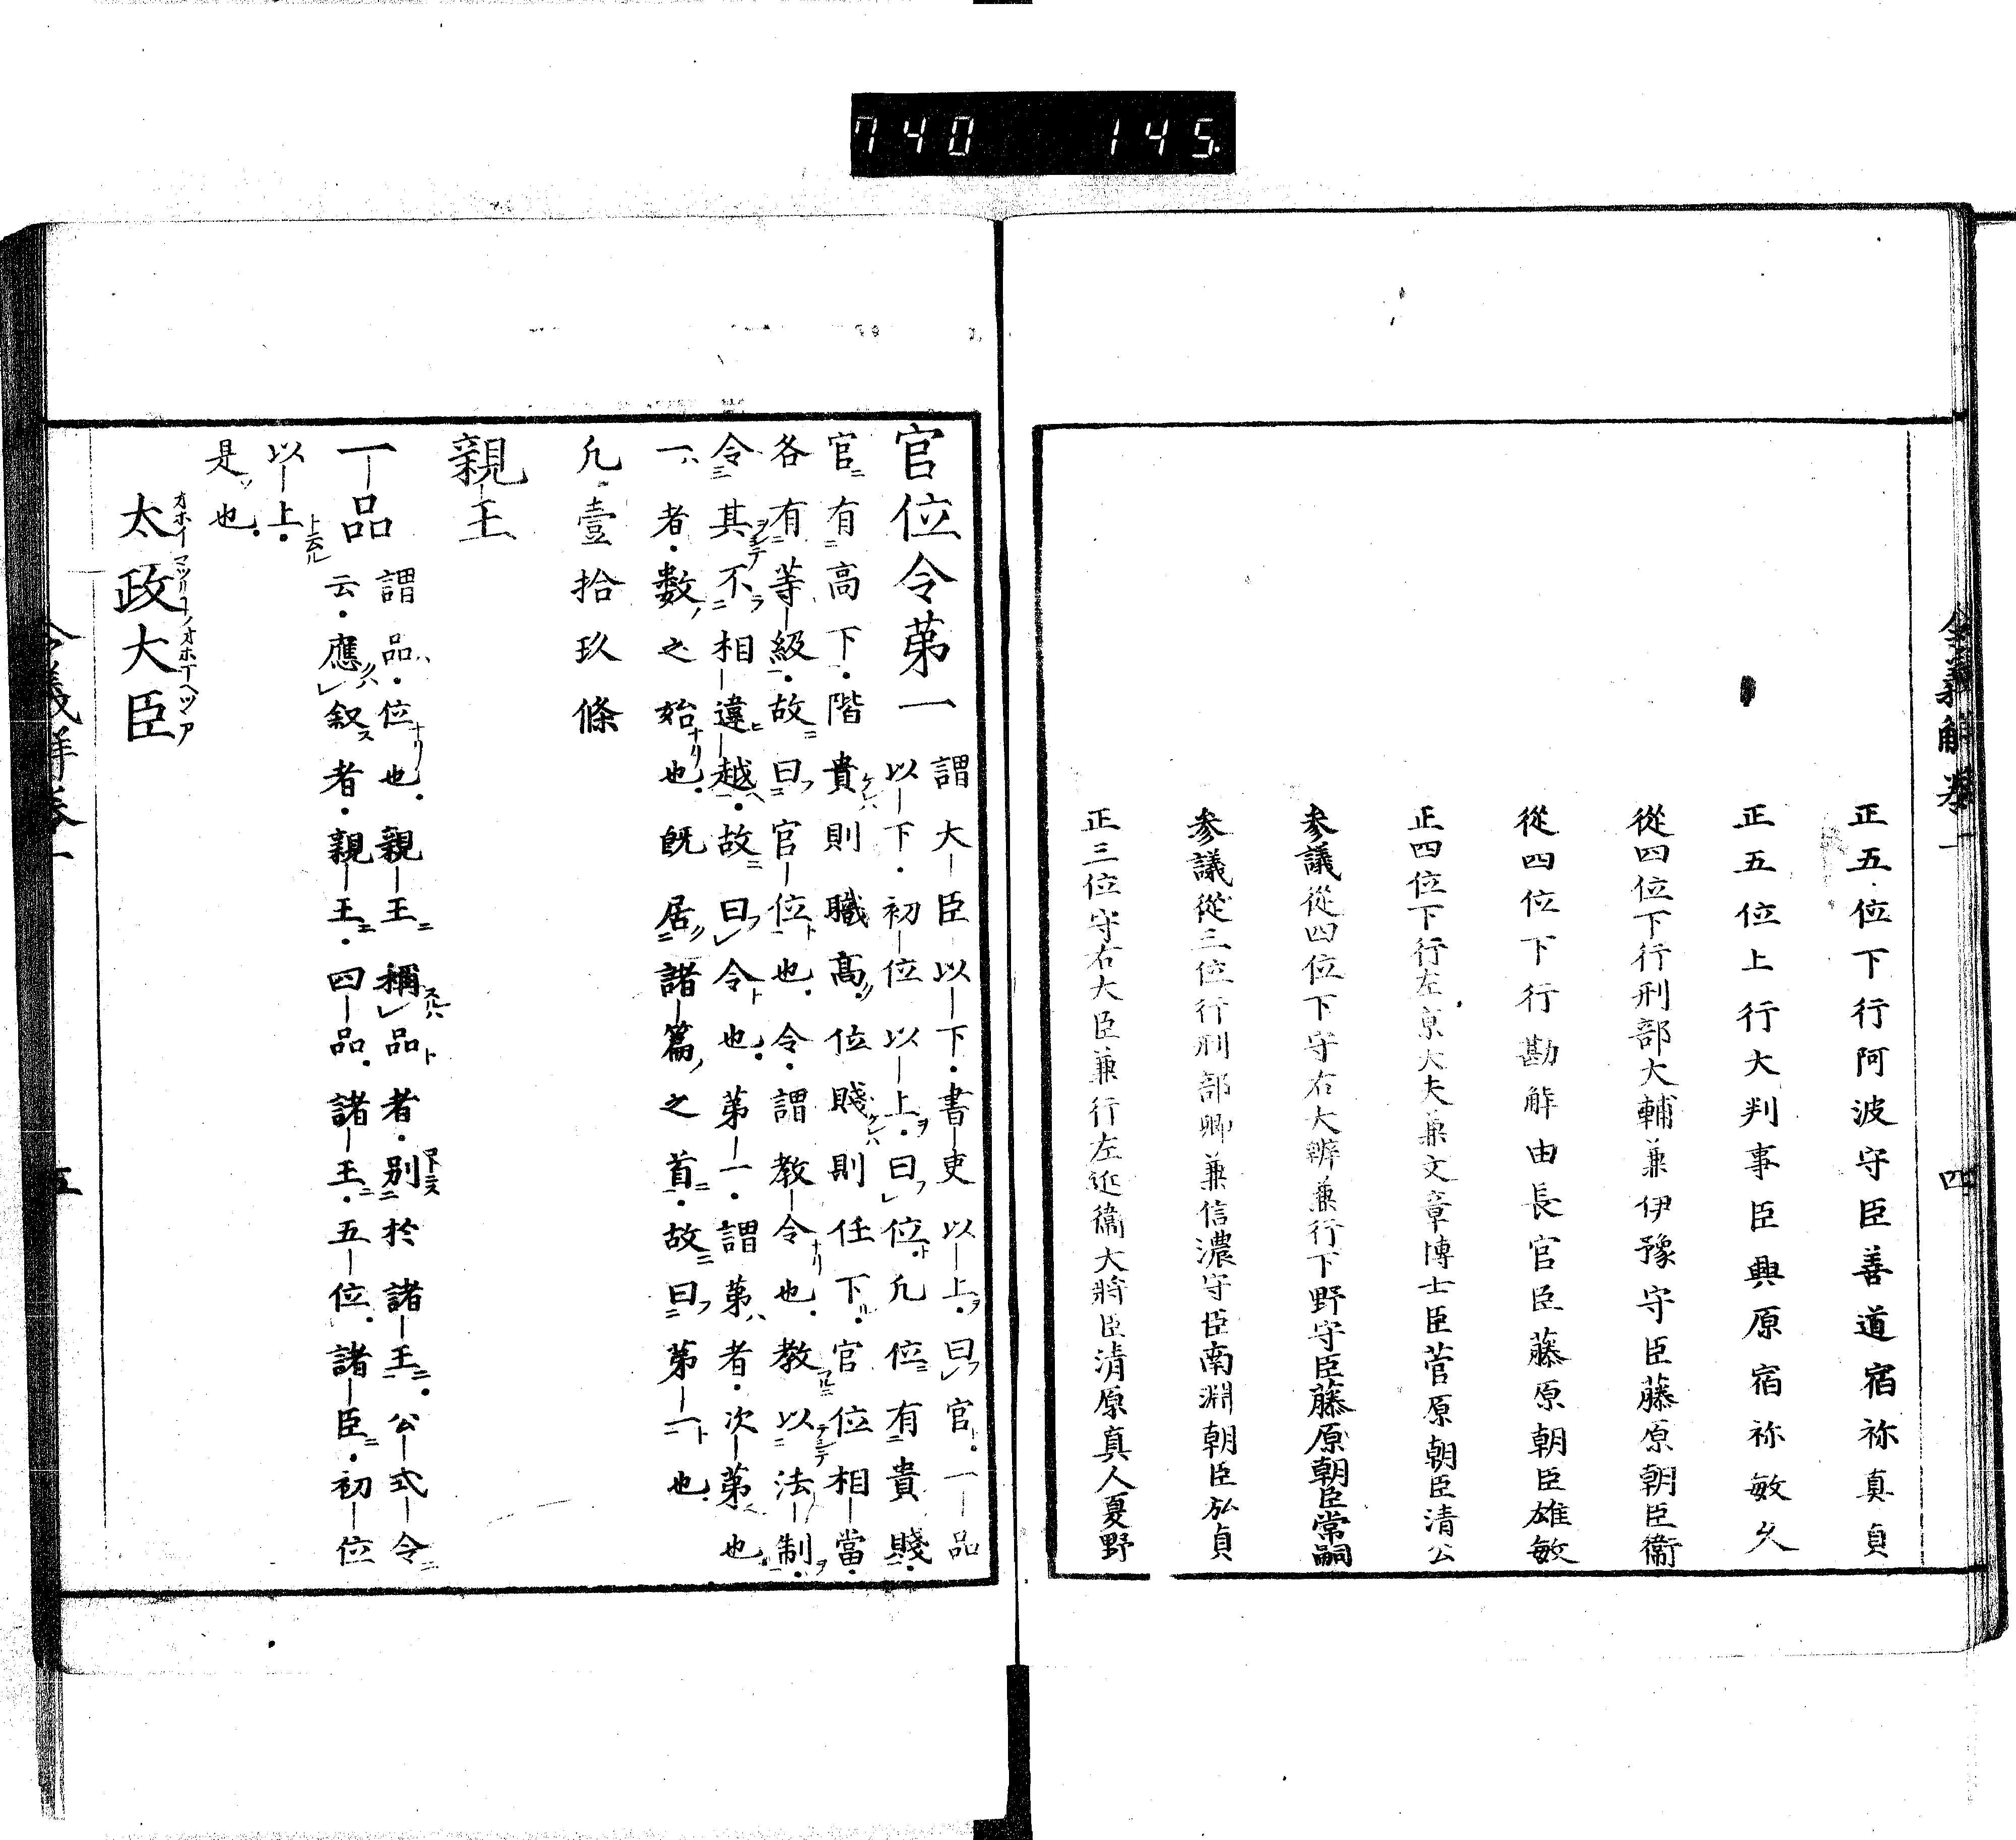 740 145.
令義解卷一 四
正五位下行阿波守臣善道宿祢真貞
正五位上行大判事臣興原宿祢敏久
從四位下行刑部大輔兼伊豫守臣藤原朝臣衞
從四位下行勘解由長官臣藤原朝臣雄敏
正四位下行左京大夫兼文章博士臣菅原朝臣清公
参議從四位下守右大辨兼行下野守臣藤原朝臣常嗣
参議從三位行刑部卿兼信濃守臣南淵朝臣弘貞
正三位守右大臣兼行左近衞大將臣清原真人夏野
官位令第一 謂大臣以下書吏以上曰官一品
以下初位以上曰位凡位有貴賤
官有高下階貴則職高位賤則任下官位相當
各有等級故曰官位也令謂教令也教以法制
令其不相違越故曰令也第一謂第者次第也
一者數之始也既居諸篇之首故曰第一也
凡壹拾玖條
親王
一品 謂品位也親王稱品者別於諸王公式令
云應叙者親王四品諸王五位諸臣初位
以上
是也
太政大臣
令義解卷一 五